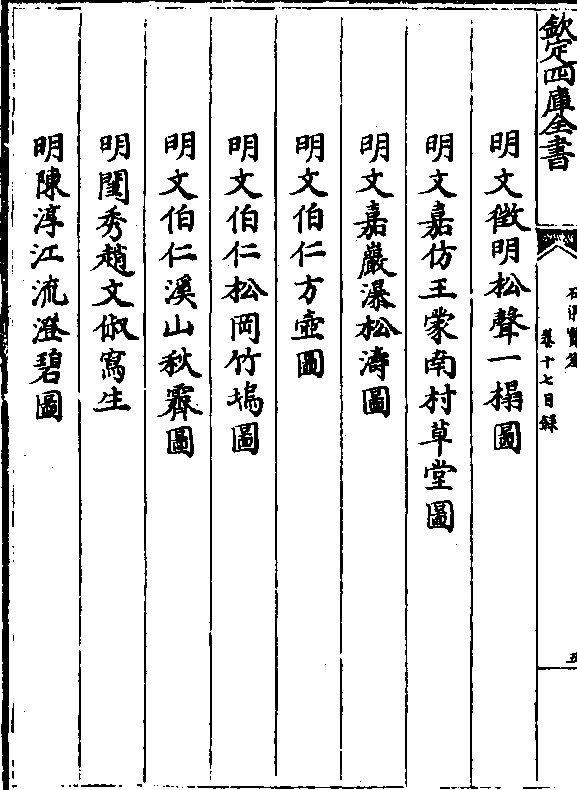 欽定四庫全書
卷十七目録
明文徴明松聲一榻圖
明文嘉仿王蒙南村草堂圖
明文嘉巖瀑松濤圖
明文伯仁方壺圖
明文伯仁松岡竹塢圖
明文伯仁溪山秋霽圖
明閨秀趙文俶寫生
明陳淳江流澄碧圖